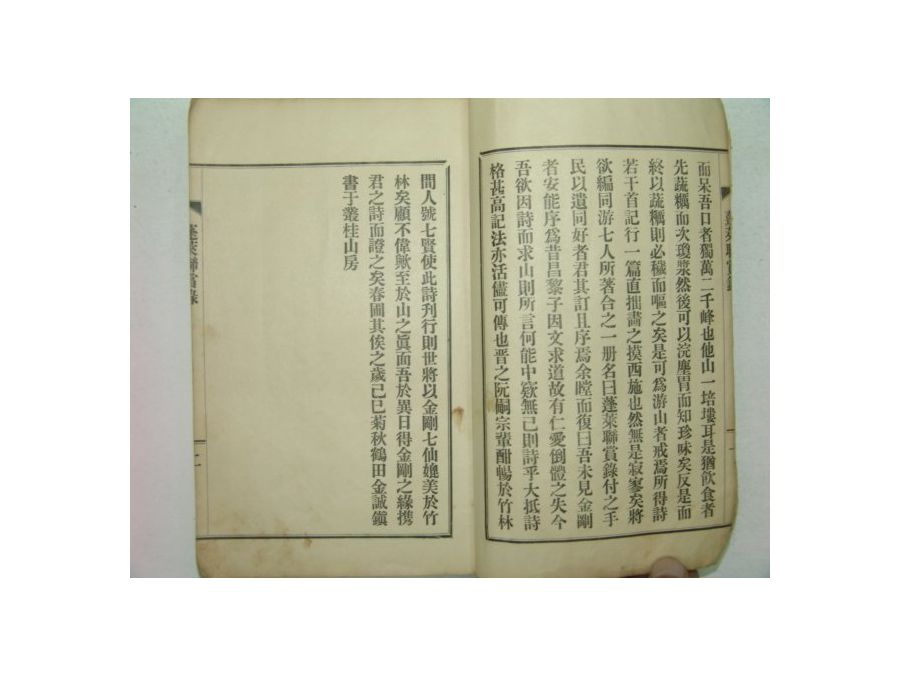 蓬萊聯賞錄
一
而呆吾口者獨萬二千峰也他山一培塿耳是猶飮食者
先蔬糲而次瓊漿然後可以浣塵胃而知珍味矣反是而
終以蔬糲則必穢而嘔之矣是可爲游山者戒焉所得詩
若干首記行一篇直拙畵之摸西施也然無是寂寥矣將
欲編同游七人所著合之一册名曰蓬萊聯賞錄付之手
民以遺同好者君其訂且序焉余瞠而復曰吾未見金剛
者安能序爲昔昌黎子因文求道故有仁愛倒體之失今
吾欲因詩而求山則所言何能中窾無已則詩乎大抵詩
格甚高記法亦活儘可傳也晋之阮嗣宗輩酣暢於竹林
間人號七賢使此詩刊行則世將以金剛七仙媲美於竹
林矣顧不偉歟至於山之眞面吾於異日得金剛之緣携
君之詩而證之矣春圃其俟之歲己巳菊秋鶴田金誠鎭
書于叢桂山房
蓬萊聯賞錄
二